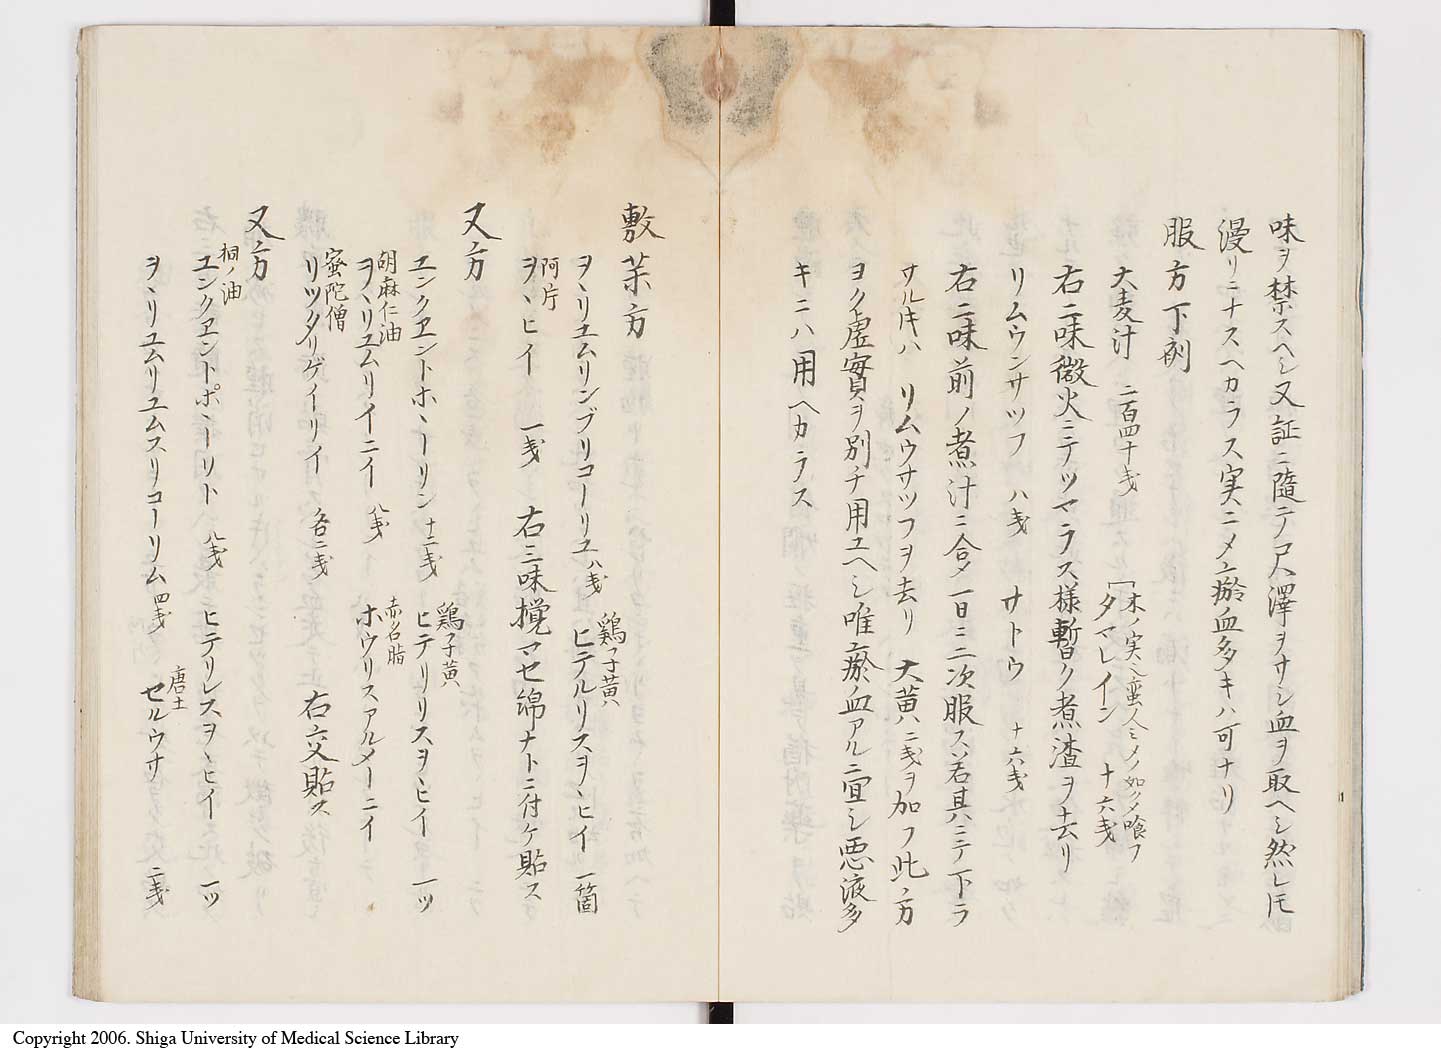 味ヲ禁スヘシ又証ニ隨テ尺澤ヲサシ血ヲ取ヘシ然レ𪜈
漫リニナスヘカラス実ニメ瘀血多キハ可ナリ
服方下剤
大麦汁 二百四十戔 タマレイン 十六戔
木ノ実也蛮人ミメノ如クメ喰フ
右二味微火ニテツマラス様暫ク煮渣ヲ去リ
リムウンサツフ 八戔 サトウ 十六戔
右二味前ノ煮汁ニ合メ一日ニ二次服ス若其ニテ下ラ
サル𪜈ハ リムウサツフヲ去リ 大黄八二戔ヲ加フ此方
ヨク虚實ヲ別チ用ユヘシ唯瘀血アルニ宜シ悪液多
キニハ用ヘカラス
敷茶方
ヲヽリユムリンブリコーリユ 八戔 ヒテルリスヲヽヒイ 一箇
鶏子黄
ヲヽヒイ 一戔 右三味攪マセ綿ナトニ付ケ貼ス
阿片
又方
ユンクヱントホヽーリン 十二戔 ヒテリリスヲヽヒイ 一ッ
鶏子黄
ヲヽリユムリイニイ 八戔 ホウリスアルメーニイ
胡麻仁油 赤石脂
リツタリゲイリイ 各二戔 右六又貼ス
蜜陀僧
又方
ユンクヱントポヽーリト 八戔 ヒテリレスヲヽヒイ 一ッ
桐ノ油
ヲヽリユムリユムスリコーリム 四戔 セルウサ 二戔
唐土
Copyright 2006. Shiga University of Medical Science Library